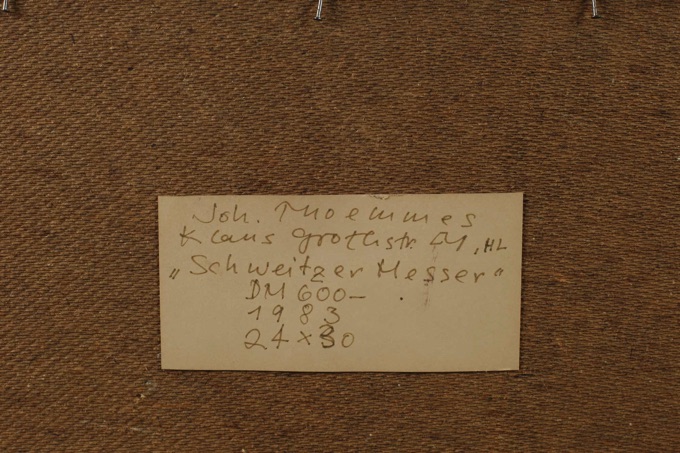 Joh. Thoemmes
Klaus Grothstr. , HL
„Schweitzer Messer“
DM 600–
1983
24 x 30